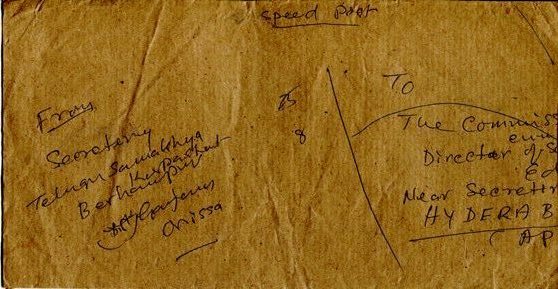 Speed Post
From
Secretary
Telugu Samakhya
Berhampur
Orissa
25
8
To
The Commiss
cum
Director of S
Ed
Near Secretri
HYDERAB
(AP